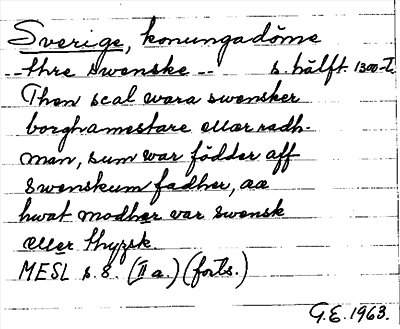 Sverige, konungadöme
-- thre swenske -- s. hälft. 1300-t.
Then scal wara swensker
borghamestare ellær radh-
man, sum war födder aff
swenskum fadher, ææ
hwat modher var swensk
æller thyzsk.
MESL s. 8. (II a.) (forts.)
G.E. 1963.